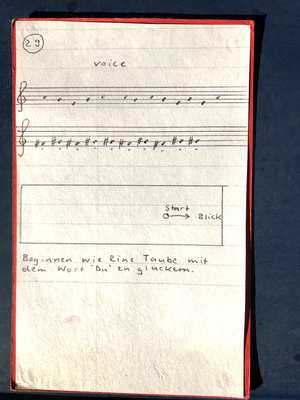 29
voice
Start
Blick
Beginnen wie eine Taube mit
dem Wort "Du" zu gluckern.